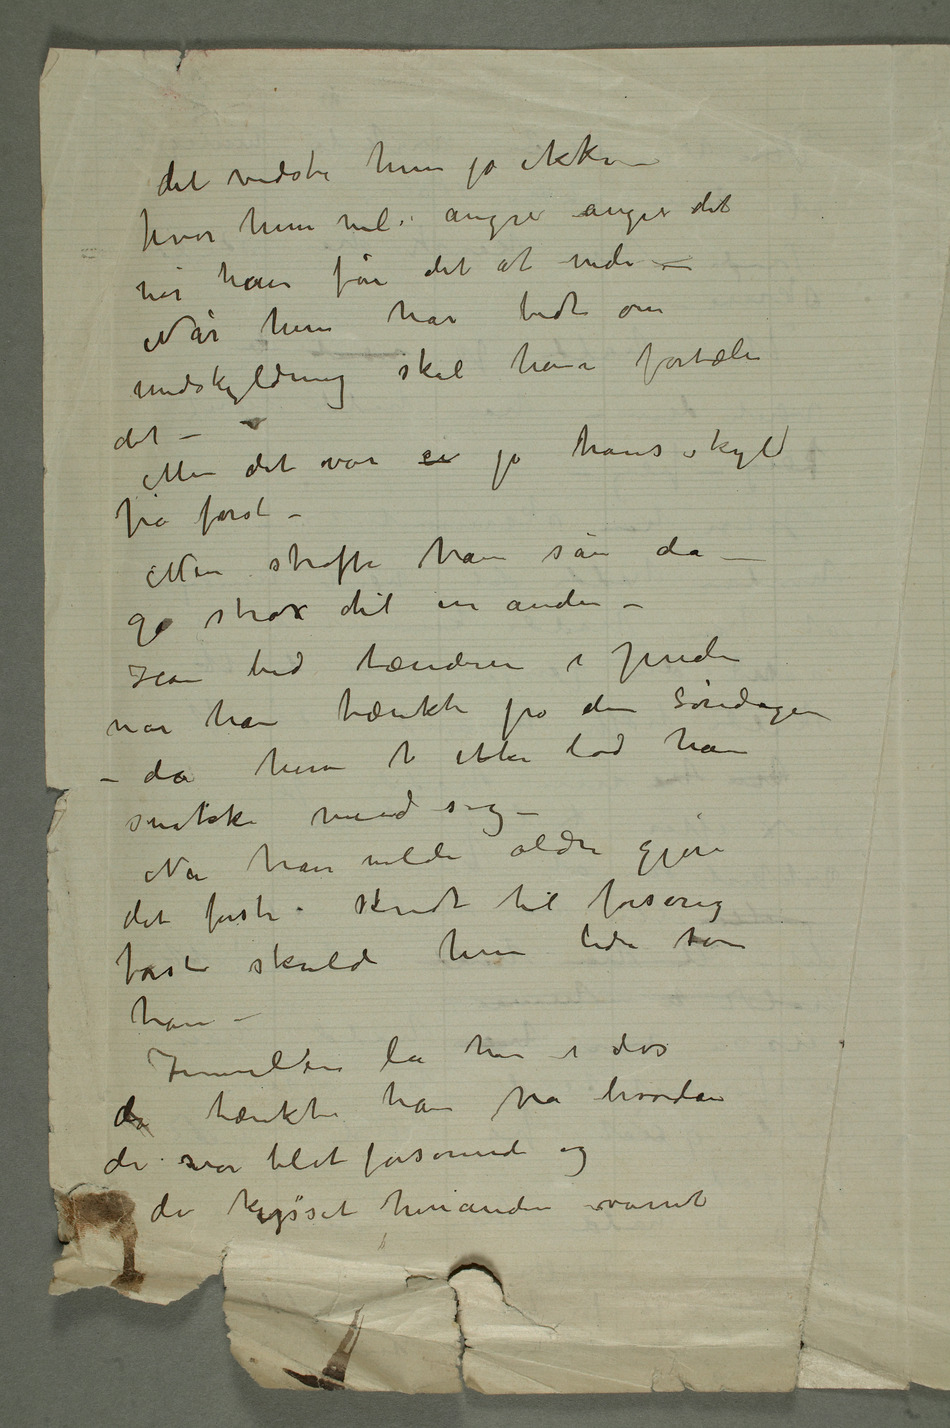 det vidste hun jo ikke –
hvor hun vil angre angre det
når han får det at vide –
Når hun har bedt om
undskyldning skal han fortælle
det –
Men det var jo hans skyld
fra først –
Men straffe ham sån da –
gå strax til en anden –
Han bed tænderne i puden
når han tænkte på den Søndagen
– da hun ikke lod ham
snakke med sig –
Nei han vilde aldri gjøre
det første skridt til forsoning
først skulde hun lide som
han –
Imellem lå han i døs
da tænkte han på hvordan
de var blet forsonet og
de kysset hinanden varmt